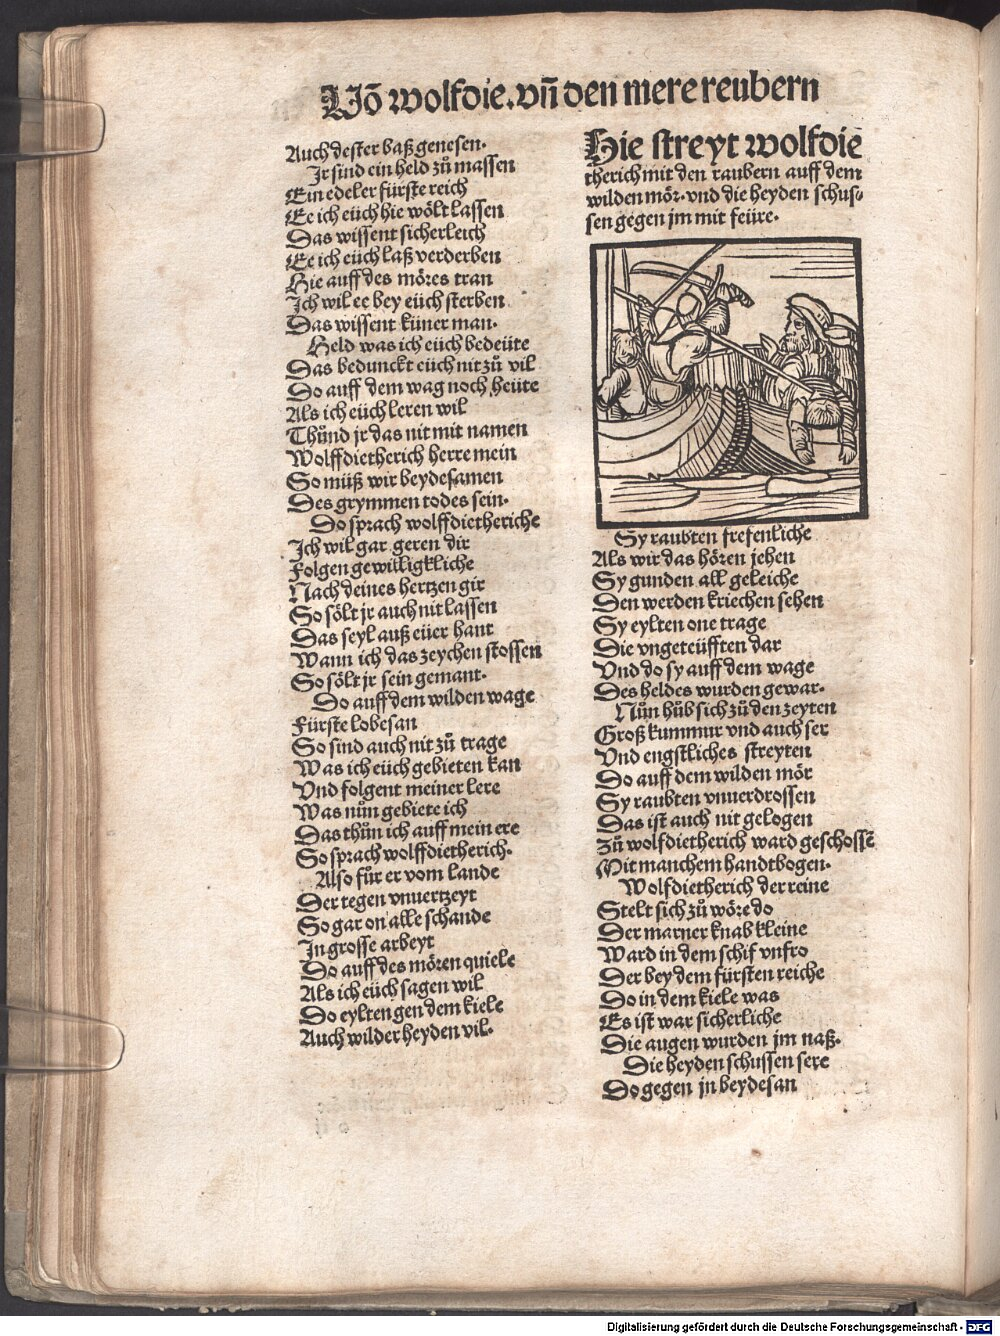 Uõ wolfdie. vñ den mere reubern
Auch dester baß genesen.
Jr sind ein held zů massen
Ein edeler fürste reich
Ee ich eüch hie wölt lassen
Das wissent sicherleich
Ee ich eüch laß verderben
Hie auff des möres tran
Jch wil ee bey eüch sterben
Das wissent küner man.
Held was ich eüch bedeüte
Das bedunckt eüch nit zů vil
So auff dem wag noch heüte
Als ich eüch leren wil
Thůnd jr das nit mit namen
Wolffdietherich herre mein
So můß wir beydesamen
Des grymmen todes sein.
Do sprach wolffdietheriche
Jch wil gar geren dir
Folgen gewilligkliche
Nach deines hertzen gir
So sölt jr auch nit lassen
Das seyl auß eüer hant
Wann ich das zeychen stossen
So sölt jr sein gemant.
Do auff dem wilden wage
Fürste lobesan
So sind auch nit zů trage
Was ich eüch gebieten kan
Vnd folgent meiner lere
Was nůn gebiete ich
Das thůn ich auff mein ere
So sprach wolffdietherich.
Also fůr er vom lande
Der tegen vnuertzeyt
So gar on alle schande
Jn grosse arbeyt
Do auff des mören quiele
Als ich eüch sagen wil
Do eylten gen dem kiele
Auch wilder heyden vil.
Hie streyt wolfdie
therich mit den raubern auff dem
wilden mör. vnd die heyden schus-
sen gegen jm mit feüre.
Sy raubten frefenliche
Als wir das hören jehen
Sy gunden all geleiche
Den werden kriechen sehen
Sy eylten one trage
Die vngeteüfften dar
Vnd do sy auff dem wage
Des heldes wurden gewar.
Nůn hůb sich zů den zeyten
Groß kummur vnd auch ser
Vnd engstliches streyten
Do auff dem wilden mör
Sy raubten vnuerdrossen
Das ist auch nit gelogen
Zů wolfdietherich ward geschossẽ
Mit manchem handtbogen.
Wolfdietherich der reine
Stelt sich zů wöre do
Der marner knab kleine
Ward in dem schif vnfro
Der bey dem fürsten reiche
Do in dem kiele was
Es ist war sicherliche
Die augen wurden jm naß.
Die heyden schussen sere
Do gegen jn beydesan
Digitalisierung gefördert durch die Deutsche Forschungsgemeinschaft - DFG